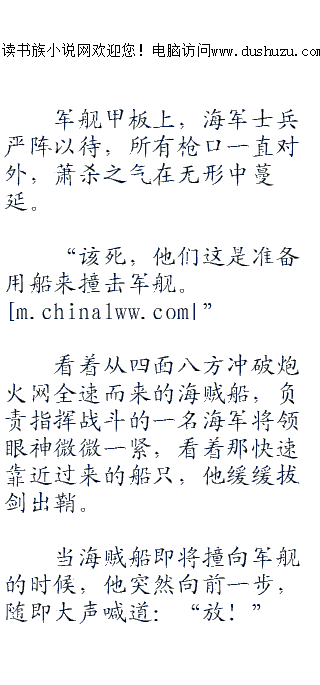 读书族小说网欢迎您！电脑访问www.dushuzu.com
军舰甲板上，海军士兵
严阵以待，所有枪口一直对
外，萧杀之气在无形中蔓
延。
“该死，他们这是准备
用船来撞击军舰。
[m.chinalww.com|”
看着从四面八方冲破炮
火网全速而来的海贼船，负
责指挥战斗的一名海军将领
眼神微微一紧，看着那快速
靠近过来的船只，他缓缓拔
剑出鞘。
当海贼船即将撞向军舰
的时候，他突然向前一步，
随即大声喊道：“放！”